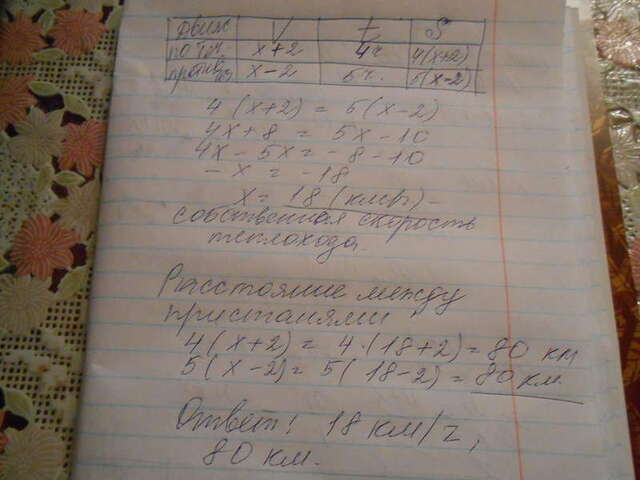 Движ V t S
по теч. x+2 4ч 4(x+2)
против x-2 5ч. 5(x-2)
4(x+2) = 5(x-2)
4x+8 = 5x-10
4x-5x = -8-10
-x = -18
x = 18 (км/ч) -
собственная скорость
теплохода.
Расстояние между
пристанями
4(x+2) = 4·(18+2) = 80 км
5(x-2) = 5(18-2) = 80 км.
Ответ: 18 км/ч,
80 км.